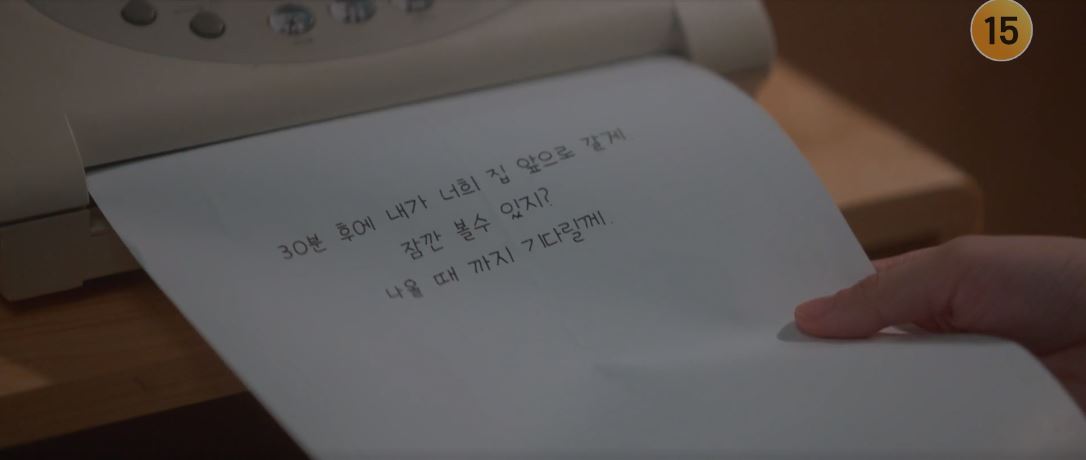 15
30분 후에 내가 너희 집 앞으로 갈게.
잠깐 볼수 있지?
나올 때 까지 기다릴께.